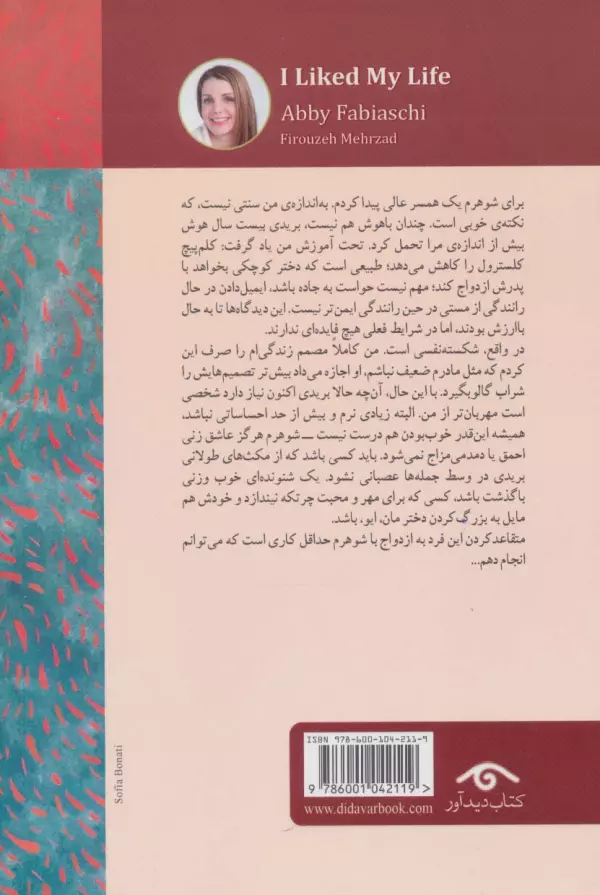 I Liked My Life
Abby Fabiaschi
Firouzeh Mehrzad
برای شوهرم یک همسر عالی پیدا کردم. به‌اندازه‌ی من سنتی نیست، که
نکته‌ی خوبی است. چندان باهوش هم نیست، بریدی بیست سال هوش
بیش از اندازه‌ی مرا تحمل کرد. تحت آموزش من یاد گرفت: کلم‌پیچ
کلسترول را کاهش می‌دهد؛ طبیعی است که دختر کوچکی بخواهد با
پدرش ازدواج کند؛ مهم نیست حواست به جاده باشد، ایمیل‌دادن در حال
رانندگی از مستی در حین رانندگی ایمن‌تر نیست. این دیدگاه‌ها تا به حال
باارزش بودند، اما در شرایط فعلی هیچ فایده‌ای ندارند.
در واقع، شکسته‌نفسی است. من کاملاً مصمم زندگی‌ام را صرف این
کردم که مثل مادرم ضعیف نباشم، او اجازه می‌داد بیش‌تر تصمیم‌هایش را
شراب گالو بگیرد. با این حال، آن‌چه حالا بریدی اکنون نیاز دارد شخصی
است مهربان‌تر از من. البته زیادی نرم و بیش از حد احساساتی نباشد،
همیشه این‌قدر خوب‌بودن هم درست نیست ــ شوهرم هرگز عاشق زنی
احمق یا دمدمی‌مزاج نمی‌شود. باید کسی باشد که از مکث‌های طولانی
بریدی در وسط جمله‌ها عصبانی نشود. یک شنونده‌ای خوب وزنی
باگذشت باشد، کسی که برای مهر و محبت چرتکه نیندازد و خودش هم
مایل به بزرگ‌کردن دختر مان، ایو، باشد.
متقاعدکردن این فرد به ازدواج با شوهرم حداقل کاری است که می‌توانم
انجام دهم...
Sofia Bonati
ISBN 978-600-104-211-9
9 786001 042119 >
www.didavarbook.com
کتاب دیدآور